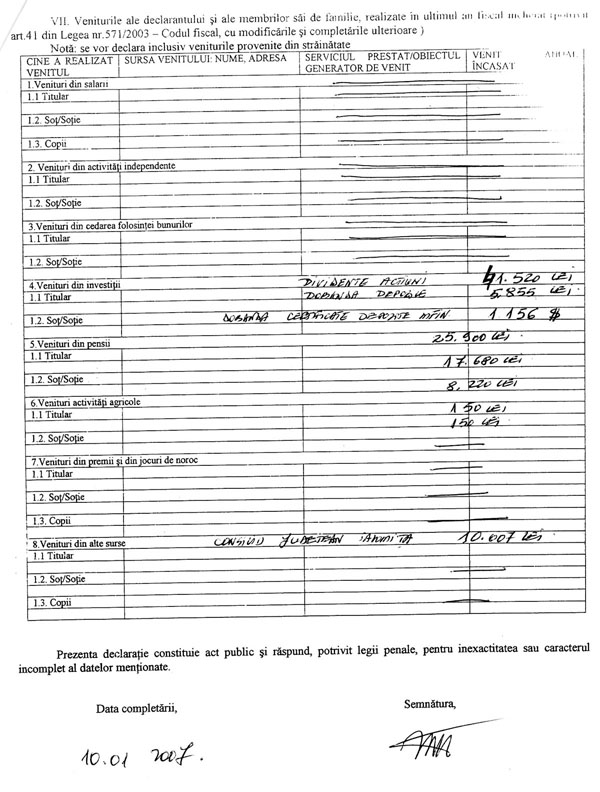 VII. Veniturile ale declarantului şi ale membrilor săi de familie, realizate în ultimul an fiscal încheiat (potrivit
art.41 din Legea nr.571/2003 – Codul fiscal, cu modificările şi completările ulterioare )
Notă: se vor declara inclusiv veniturile provenite din străinătate
CINE A REALIZAT VENITUL SURSA VENITULUI: NUME, ADRESA SERVICIUL PRESTAT/OBIECTUL GENERATOR DE VENIT VENIT ANUAL ÎNCASAT
1.Venituri din salarii
1.1 Titular
1.2. Soţ/Soţie
1.3. Copii
2. Venituri din activităţi independente
1.1 Titular
1.2. Soţ/Soţie
3.Venituri din cedarea folosinţei bunurilor
1.1 Titular
1.2. Soţ/Soţie
4.Venituri din investiţii DIVIDENTE ACTIUNI 1.520 LEI
1.1 Titular DOBANDA DEPOZITE 5.855 LEI
1.2. Soţ/Soţie DOBANDA CERTIFICATE DEPOZITE MFIN 1 156 $
5.Venituri din pensii 25.900 LEI
1.1 Titular 17.680 LEI
1.2. Soţ/Soţie 8.220 LEI
6.Venituri activităţi agricole 150 LEI
1.1 Titular 150 LEI
1.2. Soţ/Soţie
7.Venituri din premii şi din jocuri de noroc
1.1 Titular
1.2. Soţ/Soţie
1.3. Copii
8.Venituri din alte surse CONSILIU JUDETEAN IALOMITA 10.007 LEI
1.1 Titular
1.2. Soţ/Soţie
1.3. Copii
Prezenta declaraţie constituie act public şi răspund, potrivit legii penale, pentru inexactitatea sau caracterul
incomplet al datelor menţionate.
Data completării, Semnătura,
10.01 2007.